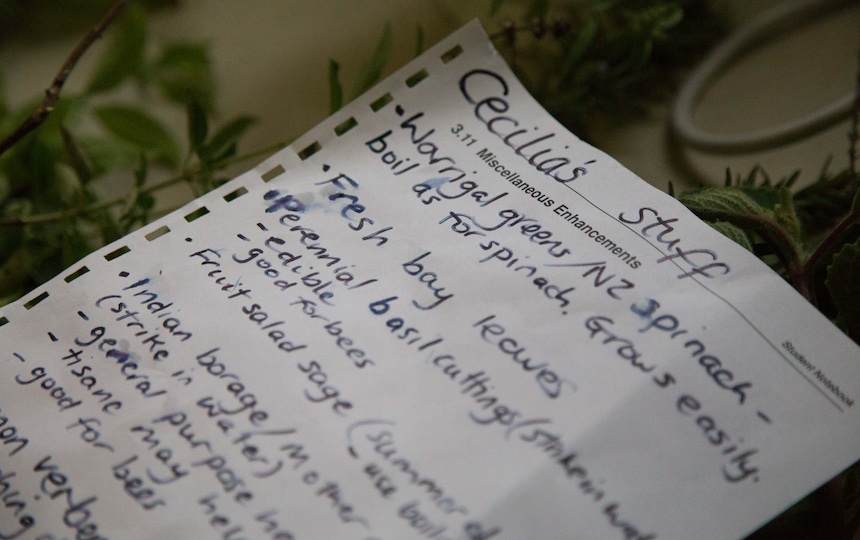 Cecilia's Stuff
3.11 Miscellaneous Enhancements
Student Notebook
• Warrigal greens/NZ spinach -
boil as for spinach. Grows easily.
• Fresh bay leaves
• perennial basil cuttings (strike in
- edible
- good for bees
• Fruit salad sage (summer
- use
• Indian borage/Mother
(strike in water)
- general purpose
- tisane may
- good for bees